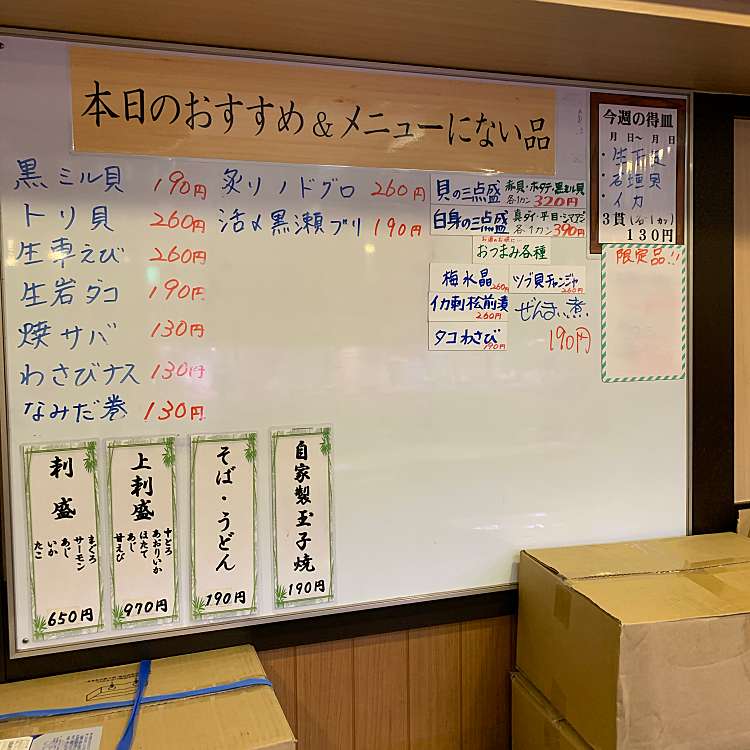 本日のおすすめ&メニューにない品
黒ミル貝 190円
トリ貝 260円
生車えび 260円
生岩ダコ 190円
焼サバ 130円
わさびナス 130円
なみだ巻 130円
炙りノドグロ 260円
活〆黒瀬ブリ 190円
貝の三点盛 赤貝・ホタテ・黒ミル貝
各1カン 320円
白身の三点盛 真ダイ・平目・シマアジ
各1カン 390円
おつまみ各種
梅水晶 260円
ツブ貝チャンジャ 260円
イカ刺松前漬 260円
ぜんまい煮 190円
タコわさび 190円
今週の得皿
月 日~月 日
・生
・石垣
・イカ
3貫(各1カン)
130円
限定品!!
刺盛
まぐろ
サーモン
あじ
いか
たこ
650円
上刺盛
中とろ
あおりいか
ほたて
あじ
甘えび
970円
そば・うどん
190円
自家製玉子焼
190円